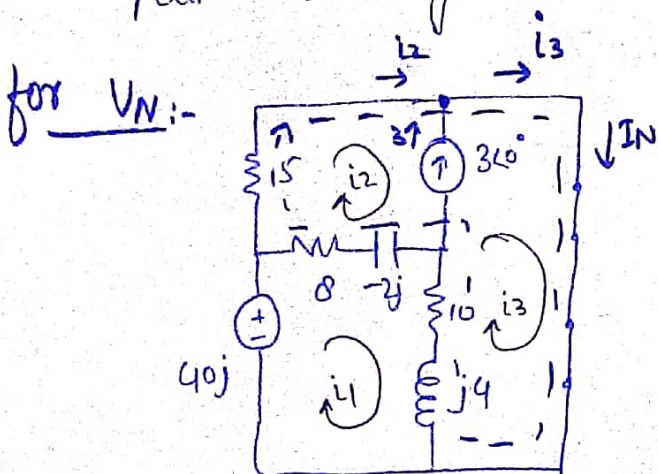 for VN:-
i2
i3
3↑
3∠0°
↓IN
15
i2
8
-2j
10
i3
40j
i1
j4